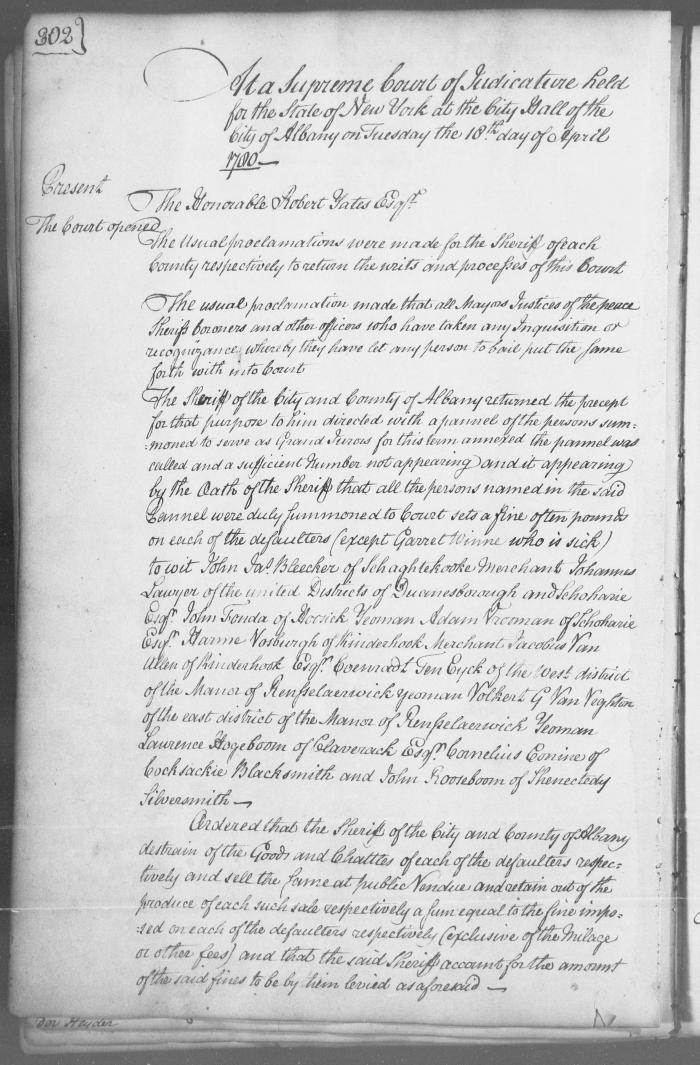 302
At a Supreme Court of Judicature held
for the State of New York at the City Hall of the
City of Albany on Tuesday the 18th day of April
1780 —
Present
The Honorable Robert Yates Esqr.
The Court opened
The Usual proclamations were made for the Sheriff of each
County respectively to return the writs and processes of this Court
The usual proclamation made that all Mayors Justices of the peace
Sheriffs Coroners and other officers who have taken any Inquisition or
recognizance whereby they have let any person to bail put the same
forth with into Court
The Sheriff of the City and County of Albany returned the precept
for that purpose to him directed with a pannel of the persons sum=
=moned to serve as Grand Jurors for this term annexed the pannel was
called and a sufficient Number not appearing and it appearing
by the Oath of the Sheriff that all the persons named in the said
Pannel were duly summoned to Court sets a fine of ten pounds
on each of the defaulters (except Garret Winne who is sick)
to wit John Jas. Bleecker of Schaghtekooke Merchant Johannes
Lawyer of the united Districts of Duanesborough and Schoharie
Esqr. John Fonda of Hosick Yeoman Adam Vrooman of Schoharie
Esqr. Harme Vosburgh of Kinderhook Merchant Jacobus Van
Allen of Kinderhook Esqr. Coenradt Ten Eyck of the West district
of the Manor of Rensselaerwick yeoman Volkert G Van Veghten
of the east district of the Manor of Rensselaerwick Yeoman
Laurence Hogeboom of Claverack Esqr. Cornelius Conine of
Cocksackie Blacksmith and John Rooseboom of Shenectedy
Silversmith —
Ordered that the Sheriff of the City and County of Albany
destrain of the Goods and Chattles of each of the defaulters respec=
tively and sell the same at public Vandue and retain out of the
produce of each such sale respectively a sum equal to the fine impo=
=sed on each of the defaulters respectively (exclusive of the Milage
or other fees) and that the said Sheriff account for the amount
of the said fines to be by him levied as aforesaid —